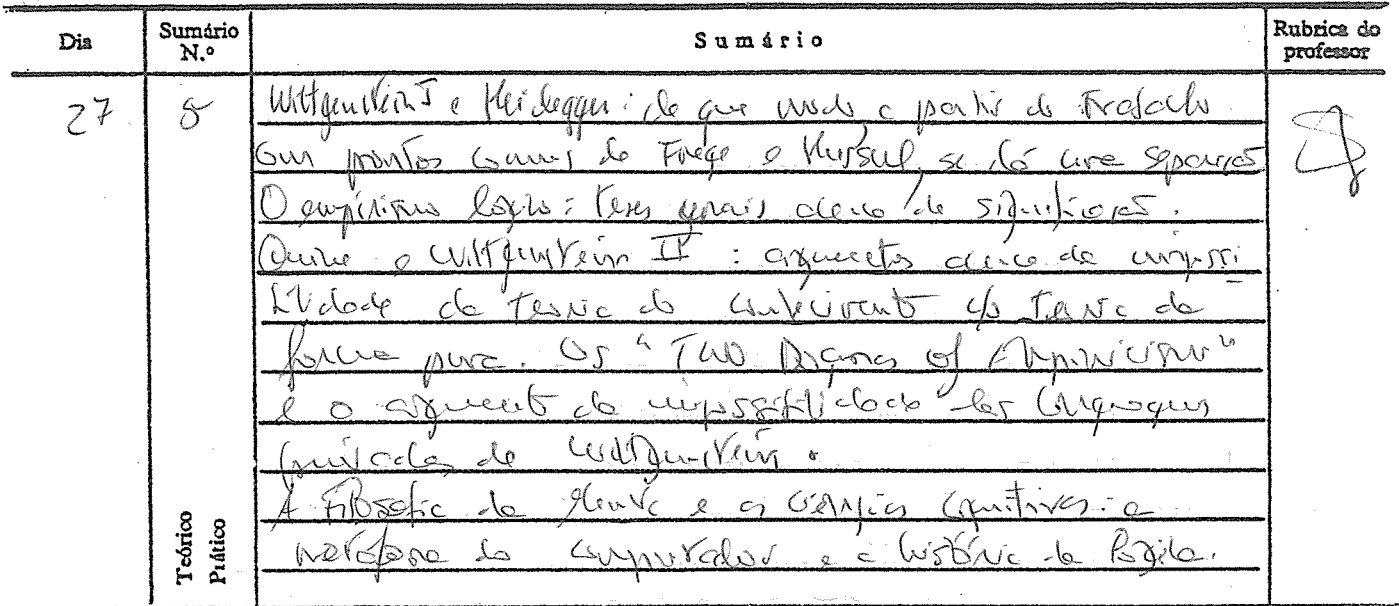 Dia Sumário N.º Sumário Rubrica do professor
27 8 Wittgenstein I e Heidegger: de que modo a partir do Tractatus
com pontos comuns de Frege e Husserl, se dá uma separação
O empirismo lógico: teses gerais acerca da significação.
Quine e Wittgenstein II : argumentos acerca da impossi
bilidade da Teoria do conhecimento c/o Teoria da
forma pura. Os "Two Dogmas of Empiricism"
e o argumento da impossibilidade das linguagens
privadas de Wittgenstein.
A Filosofia da Mente e as ciências cognitivas: a
metáfora do computador e a história da lógica.
Teórico
Prático